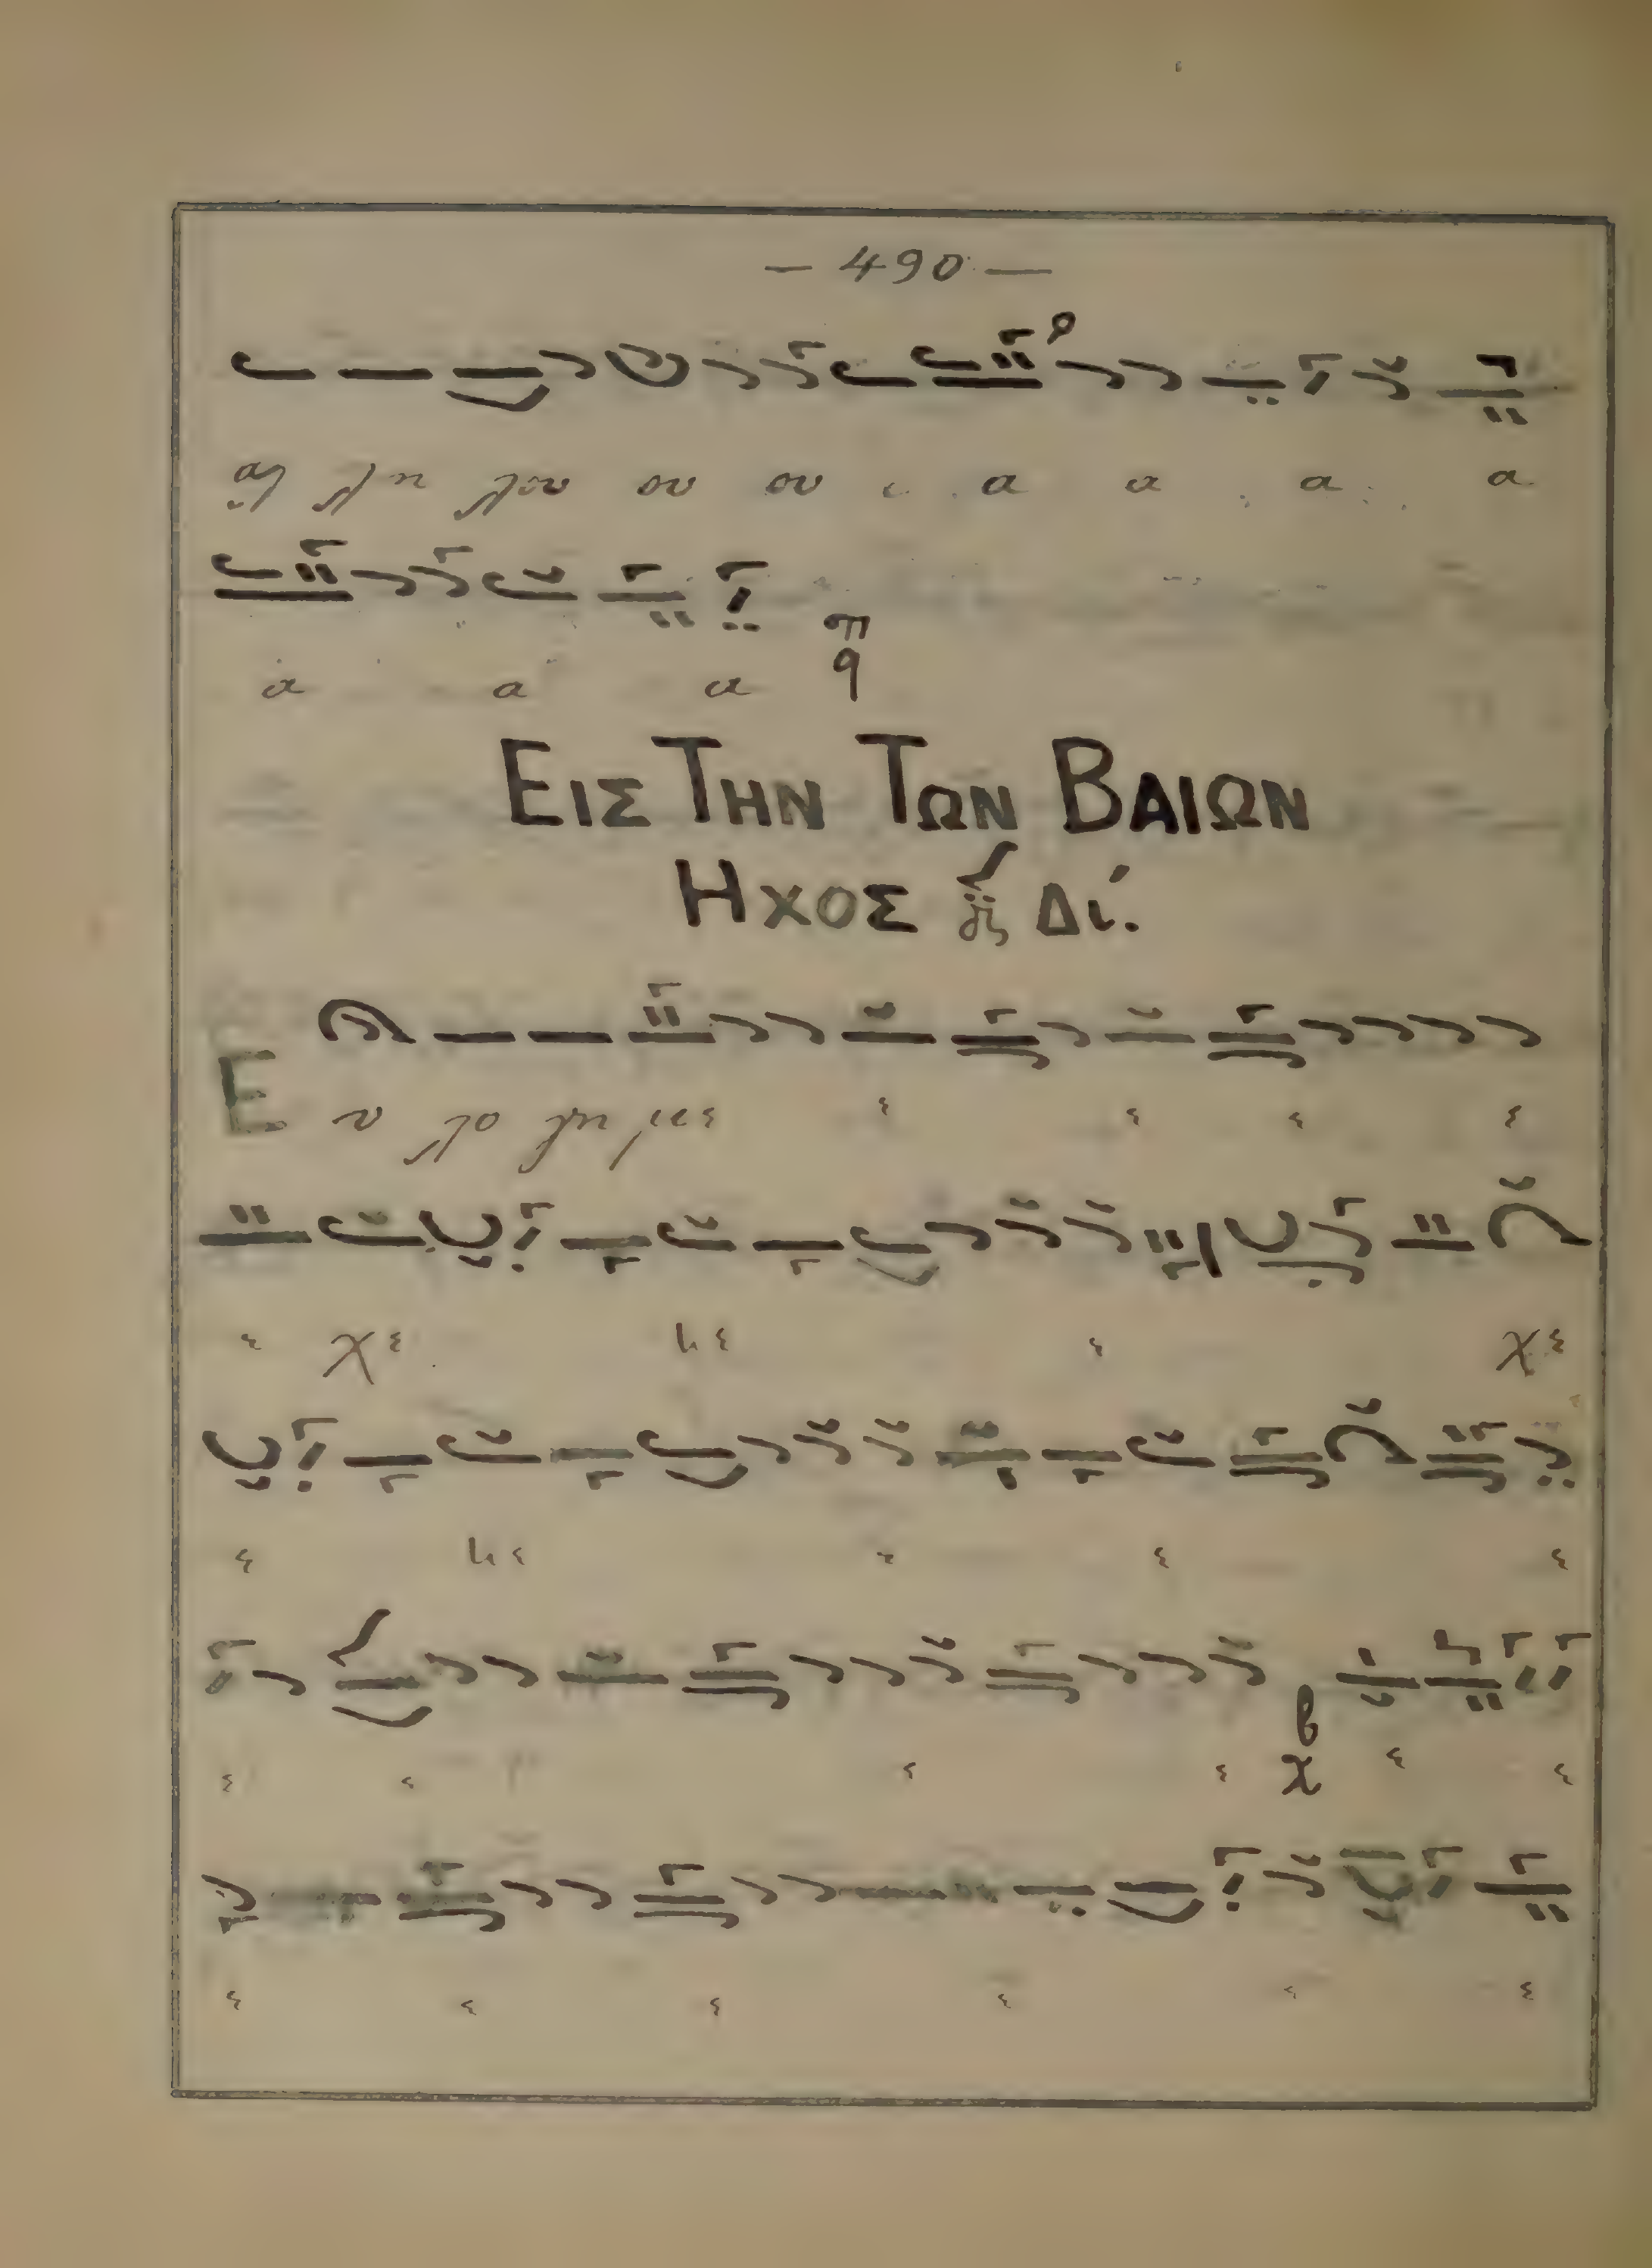 — 490 —
αλ λη λου ου ου ι α α α α
α α α π q
ΕΙΣ ΤΗΝ ΤΩΝ ΒΑΙΩΝ
ΗΧΟΣ Δι.
Ευ λο γη με ε ε ε ε
ε χε νε ε χε
ε νε ε ε ε
ε ε ε ε ε ε
ε ε ε ε ε ε